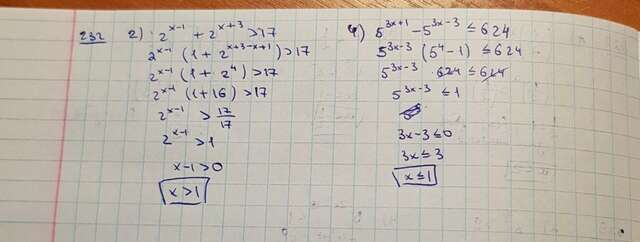 232 2) 2^{x-1} + 2^{x+3} > 17
2^{x-1} (1 + 2^{x+3-x+1}) > 17
2^{x-1} (1 + 2^4) > 17
2^{x-1} (1 + 16) > 17
2^{x-1} > 17/17
2^{x-1} > 1
x-1 > 0
x > 1
4) 5^{3x+1} - 5^{3x-3} ≤ 624
5^{3x-3} (5^4 - 1) ≤ 624
5^{3x-3} 624 ≤ 624
5^{3x-3} ≤ 1
3x-3 ≤ 0
3x ≤ 3
x ≤ 1